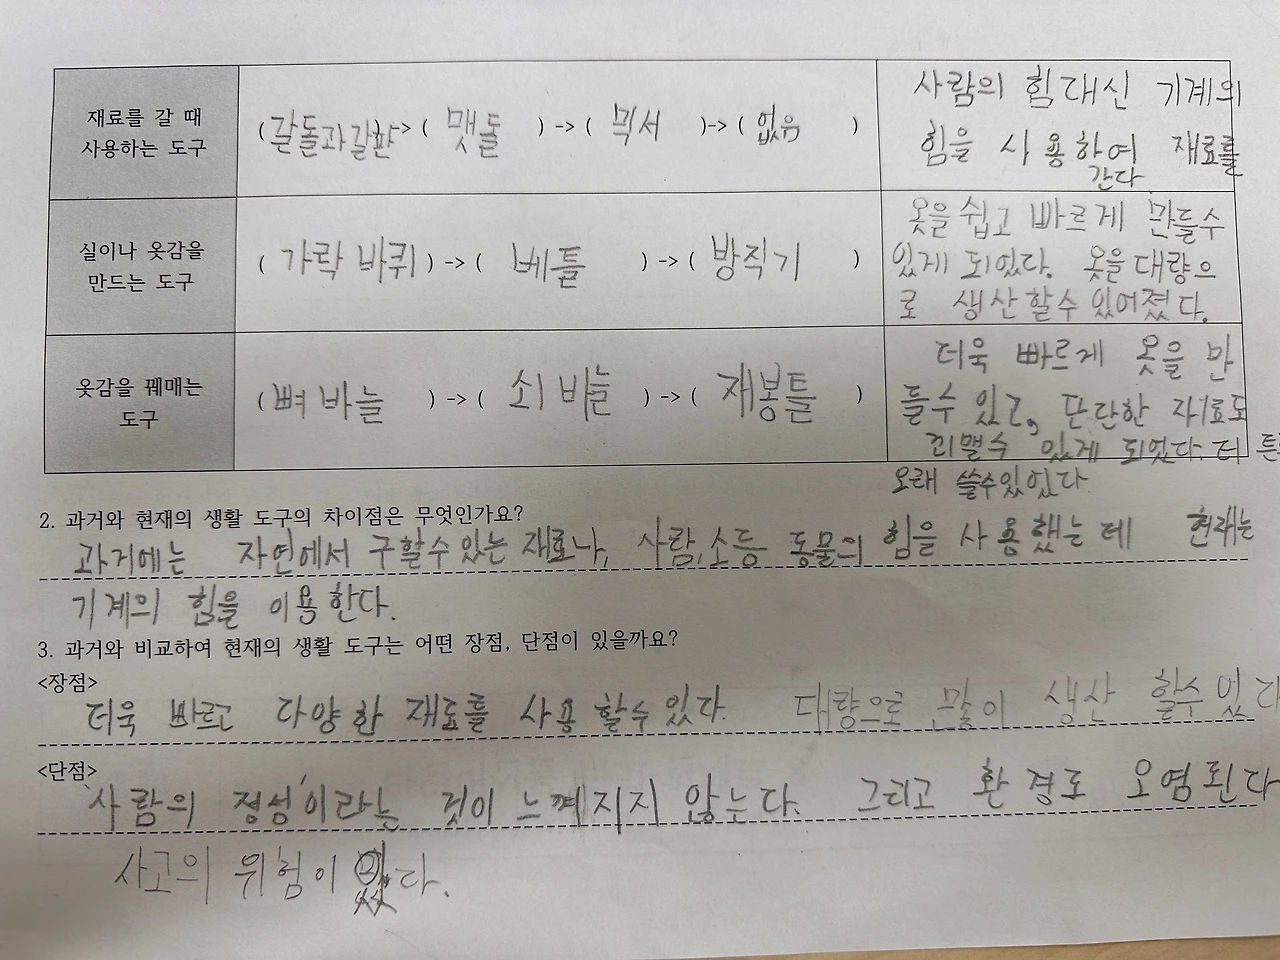 재료를 갈 때
사용하는 도구
(갈돌과갈판 > ( 맷돌 ) -> ( 믹서 )-> ( 없음 )
사람의 힘대신 기계의
힘을 사용하여 재료를
간다
실이나 옷감을
만드는 도구
( 가락 바퀴 ) -> ( 베틀 ) -> ( 방직기 )
옷을 쉽고 빠르게 만들수
있게 되었다. 옷을 대량으
로 생산할수 있어졌다.
옷감을 꿰매는
도구
( 뼈 바늘 ) -> ( 쇠 바늘 ) -> ( 재봉틀 )
더욱 빠르게 옷을 만
들수 있고, 단단한 재료도
꾀맬수 있게 되었다. 더 튼
오래 쓸수있있다
2. 과거와 현재의 생활 도구의 차이점은 무엇인가요?
과거에는 자연에서 구할수 있는 재료나, 사람,소등 동물의 힘을 사용했는데 현재는
기계의 힘을 이용한다.
3. 과거와 비교하여 현재의 생활 도구는 어떤 장점, 단점이 있을까요?
<장점>
더욱 빠르고 다양한 재료를 사용 할수있다. 대량으로 많이 생산 할수있다
<단점>
'사람의 정성'이라는 것이 느껴지지 않는다. 그리고 환경도 오염된다
사고의 위험이 있다.